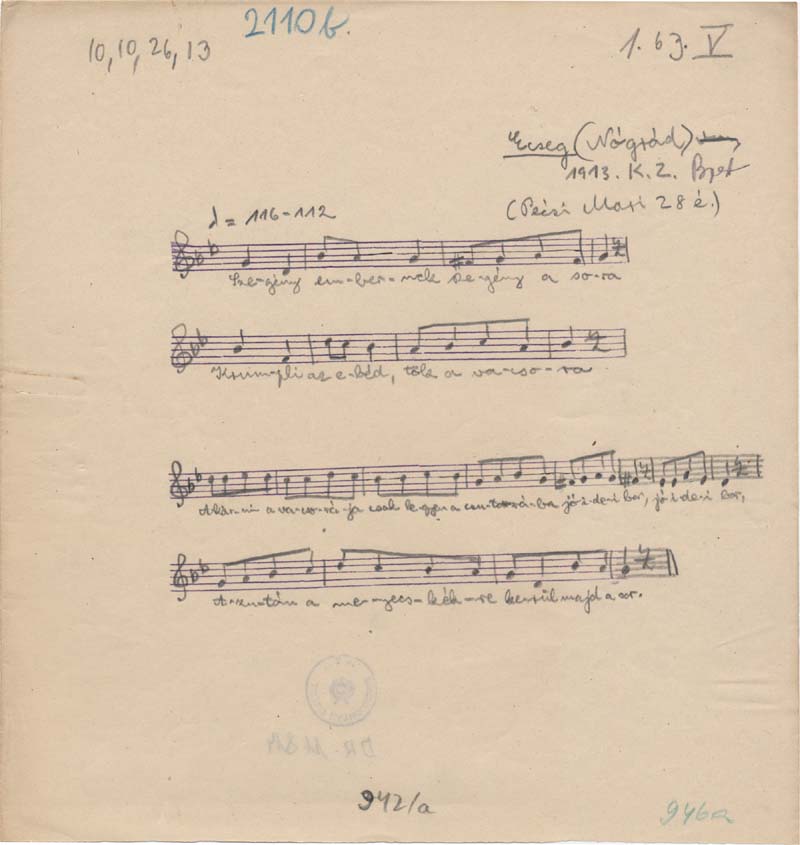 2110b.
10, 10, 26, 13
1. 63. V
Ecseg (Nógrád)
1913. K. Z. Bpest
(Pécsi Mari 28 é.)
= 116-112
Sze-gény em-ber-nek sze-gény a so-ra
Krum-pli az e-béd, tök a va-cso-ra
Akár-mi a va-cso-rá-ja csak legyen a csu-torá-ba jó-i-de-i bor, jó-i-de-i bor,
A-zu-tán a me-nyecs-kék-re kerül majd a sor.
942/a
946a